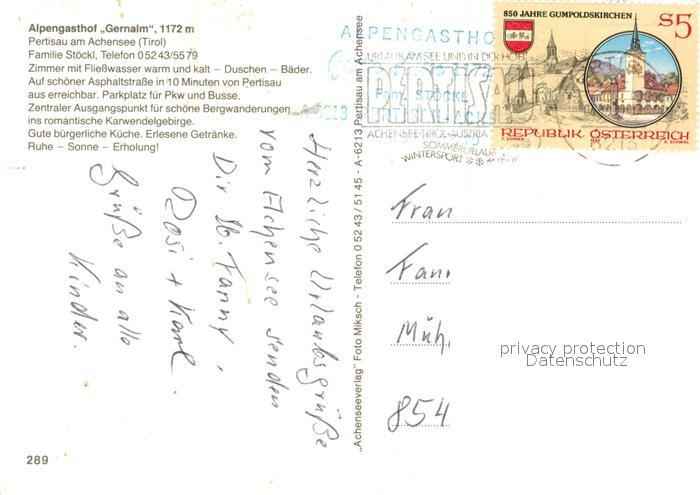 Alpengasthof „Gernalm“, 1172 m
Pertisau am Achensee (Tirol)
Familie Stöckl, Telefon 0 52 43/55 79
Zimmer mit Fließwasser warm und kalt – Duschen – Bäder.
Auf schöner Asphaltstraße in 10 Minuten von Pertisau
aus erreichbar. Parkplatz für Pkw und Busse.
Zentraler Ausgangspunkt für schöne Bergwanderungen
ins romantische Karwendelgebirge.
Gute bürgerliche Küche. Erlesene Getränke.
Ruhe – Sonne – Erholung!
Herzliche Urlaubsgrüße
vom Achensee senden
Dir, lb. Fanny,
Rosi + Karl.
Grüße an alle
Kinder.
289
„Achenseeverlag“ Foto Miksch - Telefon 0 52 43 / 51 45 - A-6213 Pertisau am Achensee
ALPENGASTHO
URLAUB AM SEE UND IN DER HÖH
PERTISAU
Fam. STÖCKL
6213
ACHENSEE-TIROL-AUSTRIA
SOMMERURLAUB
WINTERSPORT
850 JAHRE GUMPOLDSKIRCHEN
S5
REPUBLIK ÖSTERREICH
Frau
Fann
Müh
854
privacy protection
Datenschutz